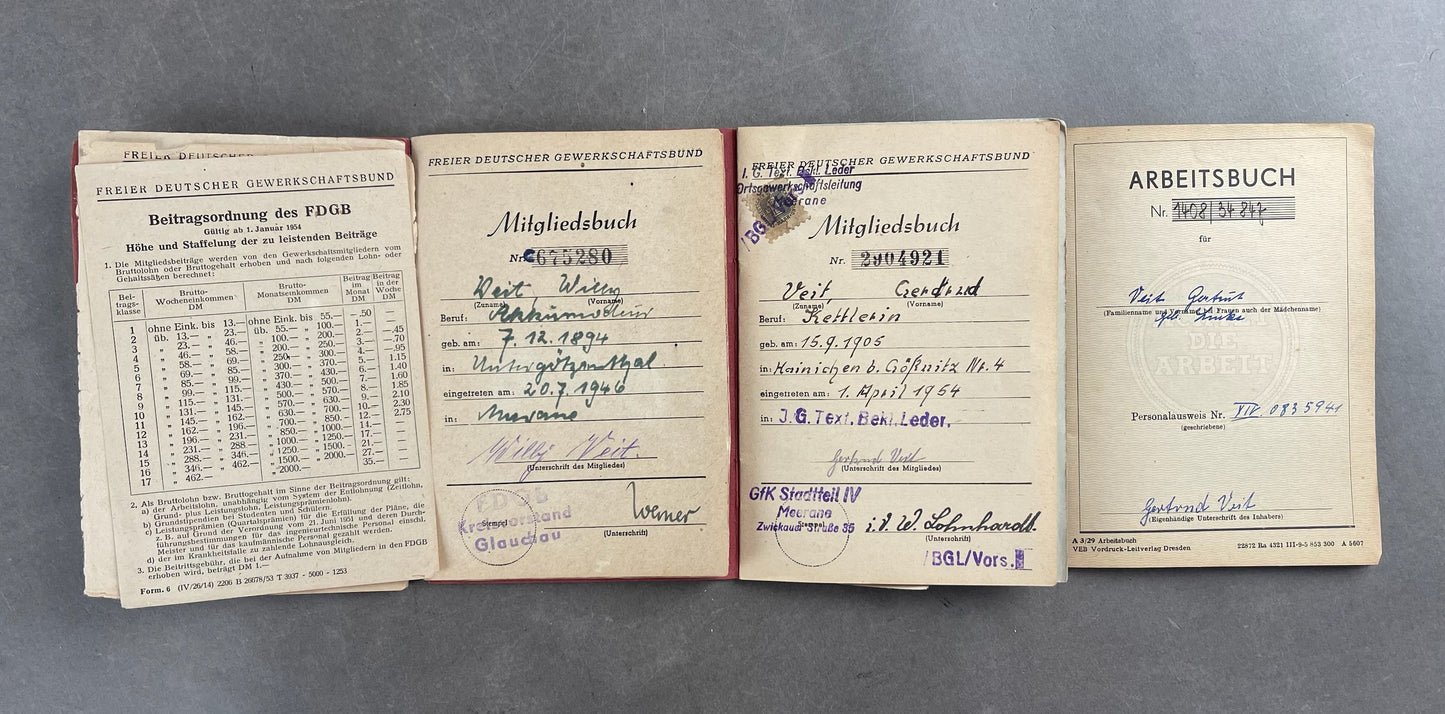 FREIER DEUTSCHER
FREIER DEUTSCHER GEWERKSCHAFTSBUND
Beitragsordnung des FDGB
Gültig ab 1. Januar 1954
Höhe und Staffelung der zu leistenden Beiträge
1. Die Mitgliedsbeiträge werden von den Gewerkschaftsmitgliedern vom
Bruttolohn oder Bruttogehalt erhoben und nach folgenden Lohn- oder
Gehaltssätzen berechnet:
Bei-tragsklasse Brutto-Wocheneinkommen DM Brutto-Monatseinkommen DM Beitrag im Monat DM Beitrag in der Woche DM
1 ohne Eink. bis 13.— ohne Eink. bis 55.— —.50 —
2 üb. 13.— „ 23.— üb. 55.— „ 100.— 1.— —
3 „ 23.— „ 46.— „ 100.— „ 200.— 2.— —.45
4 „ 46.— „ 58.— „ 200.— „ 250.— 3.— —.70
5 „ 58.— „ 69.— „ 250.— „ 300.— 4.— —.95
6 „ 69.— „ 85.— „ 300.— „ 370.— 5.— 1.15
7 „ 85.— „ 99.— „ 370.— „ 430.— 6.— 1.40
8 „ 99.— „ 115.— „ 430.— „ 500.— 7.— 1.60
9 „ 115.— „ 131.— „ 500.— „ 570.— 8.— 1.85
10 „ 131.— „ 145.— „ 570.— „ 630.— 9.— 2.10
11 „ 145.— „ 162.— „ 630.— „ 700.— 10.— 2.30
12 „ 162.— „ 196.— „ 700.— „ 850.— 12.— 2.75
13 „ 196.— „ 231.— „ 850.— „ 1000.— 14.— —
14 „ 231.— „ 288.— „ 1000.— „ 1250.— 17.— —
15 „ 288.— „ 346.— „ 1250.— „ 1500.— 21.— —
16 „ 346.— „ 462.— „ 1500.— „ 2000.— 27.— —
17 „ 462.— „ 2000.— 35.— —
2. Als Bruttolohn bzw. Bruttogehalt im Sinne der Beitragsordnung gilt:
a) der Arbeitslohn, unabhängig vom System der Entlohnung (Zeitlohn,
Grund- plus Leistungslohn, Leistungsprämienlohn).
b) Grundstipendien bei Studenten und Schülern.
c) Leistungsprämien (Quartalsprämien) für die Erfüllung der Pläne, die
z. B. auf Grund der Verordnung vom 21. Juni 1951 und deren Durch-
führungsbestimmungen für das ingenieurtechnische Personal einschl.
Meister und für das kaufmännische Personal gezahlt werden.
d) der im Krankheitsfalle zu zahlende Lohnausgleich.
3. Die Beitrittsgebühr, die bei der Aufnahme von Mitgliedern in den FDGB
erhoben wird, beträgt DM 1.—
Form. 6 (IV/26/14) 2206 B 26678/53 T 3937 - 5000 - 1253
FREIER DEUTSCHER GEWERKSCHAFTSBUND
Mitgliedsbuch
Nr. C675280
Veit Willy
(Zuname) (Vorname)
Beruf:
geb. am: 7.12.1894
in: Untergötzenthal
eingetreten am: 20.7.1946
in: Meerane
Willy Veit.
(Unterschrift des Mitgliedes)
FDGB
Stempel
Kreisvorstand
Glauchau
Werner
(Unterschrift)
FREIER DEUTSCHER GEWERKSCHAFTSBUND
I. G. Text. Bekl. Leder
Ortsgewerkschaftsleitung
Meerane
BGL/Vors.
Mitgliedsbuch
Nr. 2904921
Veit, Gertrud
(Zuname) (Vorname)
Beruf: Kettlerin
geb. am: 15.9.1905
in: Hainichen b. Gößnitz Nr. 4
eingetreten am: 1. April 1954
in: J.G. Text. Bekl. Leder.
Gertrud Veit
(Unterschrift des Mitgliedes)
GfK Stadtteil IV
Meerane
Zwickauer Straße 35
i.V. W. Lohnhardt.
(Unterschrift)
BGL/Vors.
ARBEITSBUCH
Nr. 1408/34 847
für
Veit Gertrud
(Familienname und Vorname bei Frauen auch der Mädchenname)
geb.
DIE
ARBEIT
Personalausweis Nr. XIV 0835941
(geschriebene)
Gertrud Veit
(Eigenhändige Unterschrift des Inhabers)
A 3/29 Arbeitsbuch
VEB Vordruck-Leitverlag Dresden
22872 Ra 4321 III-9-5 853 300 A 5607